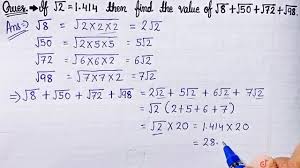 Ques:→ If √2 = 1.414 then find the value of √8+√50+√72+√98.
Ans:→ √8 = √2×2×2 = 2√2
√50 = √2×5×5 = 5√2
√72 = √2×6×6 = 6√2
√98 = √7×7×2 = 7√2
⇒ √8+√50+√72+√98 = 2√2+5√2+6√2+7√2
= √2 (2+5+6+7)
= √2×20 = 1.414×20
= 28.